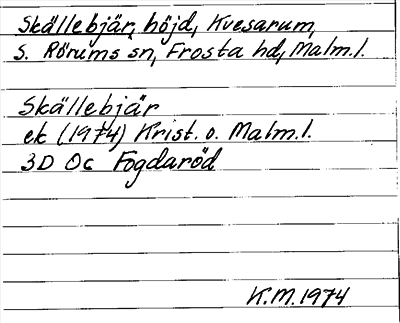 Skällebjär, höjd, Kvesarum,
S. Rörums sn, Frosta hd, Malm.l.
Skällebjär
ek (1974) Krist. o. Malm.l.
3D Oc Fogdaröd
K.M. 1974